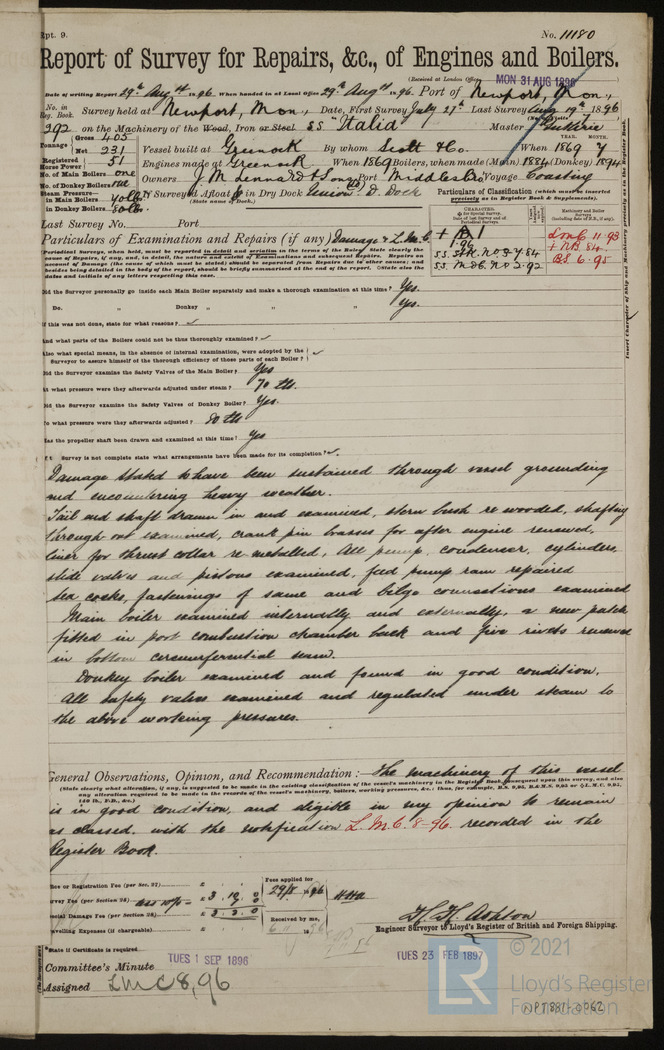 Rpt. 9.
No. 11180
Report of Survey for Repairs, &c., of Engines and Boilers.
(Received at London Office
MON 31 AUG 1896
Date of writing Report 29th Augst 1896. When handed in at Local Office 29th Augst 1896. Port of Newport, Mon,
No. in Reg. Book. Survey held at Newport, Mon, Date, First Survey July 27th Last Survey Aug 19th 1896
292 on the Machinery of the Wood, Iron or Steel S.S. "Italia" Master Guthrie
Tonnage Gross 405
Net 231
Vessel built at Greenock By whom Scott & Co. When 1869 7
YEAR. MONTH.
Registered Horse Power 51
Engines made at Greenock When 1869 Boilers, when made (Main) 1884 (Donkey) 1894
No. of Main Boilers one
No. of Donkey Boilers one
Owners J. M. Lennard & Sons Port Middlesbro Voyage Coasting
Steam Pressure
in Main Boilers 70 lbs
in Donkey Boilers 80 lbs
If Survey is Afloat or in Dry Dock Union Co D. Dock
(State name of Dock.)
Particulars of Classification (which must be inserted precisely as in Register Book & Supplements).
CHARACTER.
Machinery and Boiler Surveys
1.96
L.M.C. 11.93
+ N.B. 84
B.S. 6.95
Last Survey No. Port
Particulars of Examination and Repairs (if any) Damage & L.M.C.
Did the Surveyor personally go inside each Main Boiler separately and make a thorough examination at this time? Yes.
Do. " Donkey " " " Yes.
If this was not done, state for what reasons?
And what parts of the Boilers could not be thus thoroughly examined?
Also what special means, in the absence of internal examination, were adopted by the
Surveyor to assure himself of the thorough efficiency of those parts of each Boiler?
Did the Surveyor examine the Safety Valves of the Main Boiler? Yes
At what pressure were they afterwards adjusted under steam? 70 lbs.
Did the Surveyor examine the Safety Valves of Donkey Boiler? Yes.
To what pressure were they afterwards adjusted? 80 lbs
Has the propeller shaft been drawn and examined at this time? Yes
If Survey is not complete state what arrangements have been made for its completion?
Damage stated to have been sustained through vessel grounding
and encountering heavy weather.
Tail end shaft drawn in and examined, stern bush re wooded, shafting
throughout examined, crank pin brasses for after engine renewed,
liner for thrust collar re-metalled, All pump, condenser, cylinders,
slide valves and pistons examined, feed pump ram repaired
Sea cocks, fastenings of same and bilge connections examined
Main boiler examined internally and externally, a new patch
fitted in port combustion chamber back and five rivets renewed
in bottom circumferential seam.
Donkey boiler examined and found in good condition.
All safety valves examined and regulated under steam to
the above working pressures.
General Observations, Opinion, and Recommendation:— The machinery of this vessel
(State clearly what alteration, if any, is suggested to be made in the existing classification of the vessel's machinery in the Register Book, consequent upon this survey, and also
is in good condition, and eligible in my opinion to remain
as classed, with the notification L.M.C. 8-96. recorded in the
Register Book.
Office or Registration Fee (per Sec. 27) £
Survey Fee (per Section 28) £ 3. 10. 0
Special Damage Fee (per Section 28) £ 3. 3. 0
Travelling Expenses (if chargeable) £
Fees applied for 29/8 1896
Received by me,
H. H. Ashton
Engineer Surveyor to Lloyd's Register of British and Foreign Shipping.
State if Certificate is required
Committee's Minute TUES 1 SEP 1896
TUES 23 FEB 1897
Assigned LMC 8,96
© 2021
LR
Lloyd's Register
Foundation
NPT881-0962
Insert Character of Ship and Machinery precisely as in the Register Book.